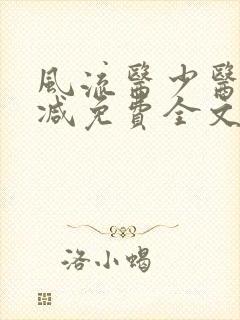 風流醫少醫
減免費全文
洛小蝎